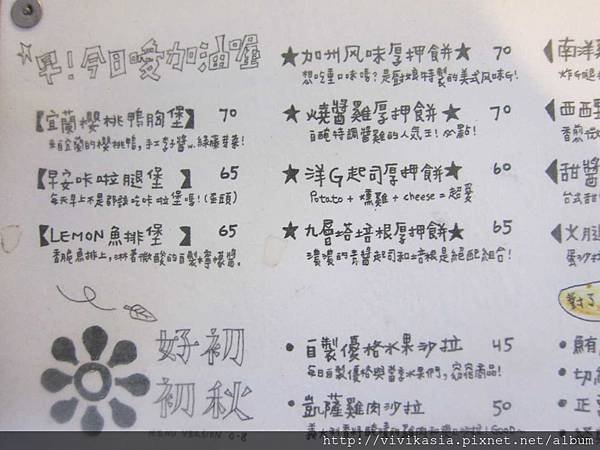 早!今日愛加油喔
【宜蘭櫻桃鴨胸堡】 70
來自宜蘭的櫻桃鴨,手工李子醬..綠藤芽菜!
【早安咔啦腿堡 】 65
每天早上不是都該吃咔啦堡嗎!(蛋頭)
【LEMON魚排堡 】 65
香脆魚排上,淋著微酸的自製檸檬醬。
好初
初秋
MENU VERSION 0.8
★加州风味厚押餅★ 70
想吃重口味嗎?是廚娘特製的美式风味G!
★燒醬雞厚押餅★ 70
自醃特調醬雞的人氣王!必點!
★洋G起司厚押餅★ 60
Potato + 燻雞 + cheese = 超愛
★九層塔培根厚押餅★ 65
濃濃的青醬起司和培根是絕配組合!
• 自製優格水果沙拉 45
每日自製優格與當季水果們,窈窕商品!
• 凱薩雞肉沙拉 50
南洋雞
炸G腿
西西里
香煎
甜醬
台式甜
火腿
蛋沙拉
對了
• 鮪
• 切
• 正
http://vivikasia.pixnet.net/album